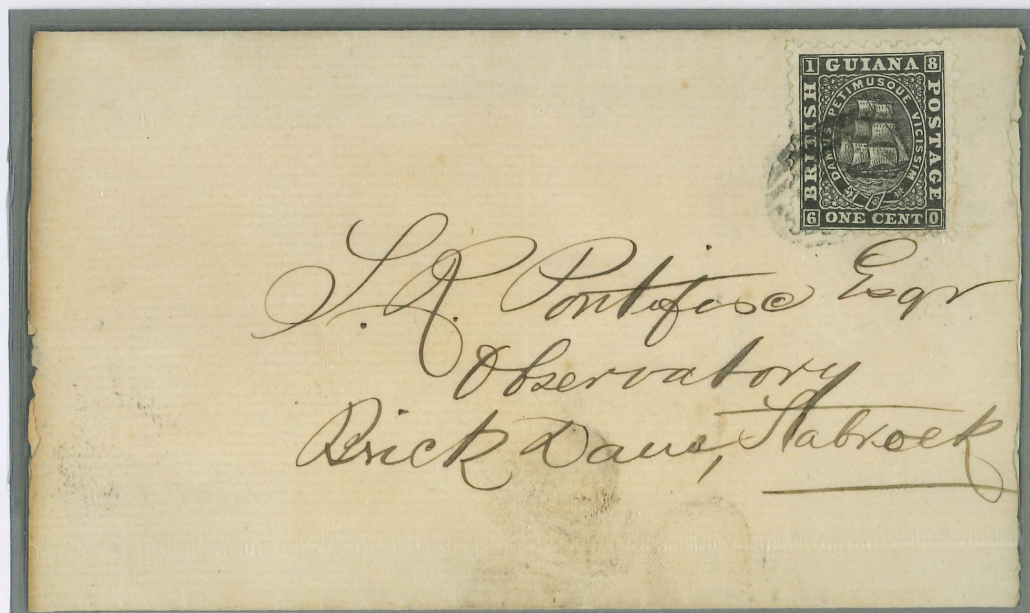 1 GUIANA 8
BRITISH
POSTAGE
DAMUS PETIMUSQUE VICISSIM
6 ONE CENT 0
S. R. Pontifisc Esqr
Observatory
Brick Dam, Stabroek